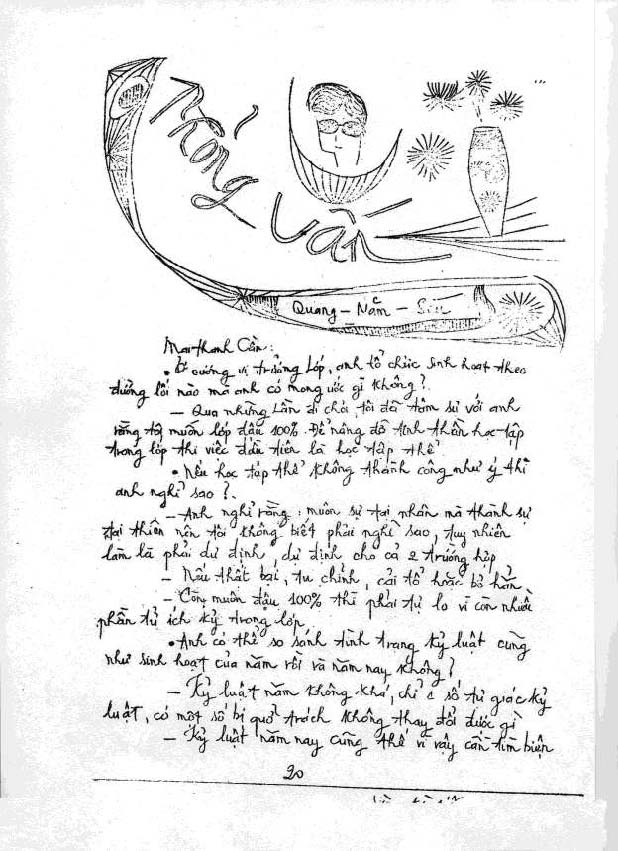 Phỏng vấn
Quang - Năm - Sửu
Mai thanh Cần:
• Ở cương vị trưởng lớp, anh tổ chức sinh hoạt theo
đường lối nào mà anh có mong ước gì không?
- Qua những lần đi chơi, tôi đã tâm sự với anh
rằng tôi muốn lớp đậu 100%. Để nâng đỡ tinh thần học tập
trong lớp thì việc đầu tiên là học tập thể.
• Nếu học tập thể không thành công như ý thì
anh nghĩ sao?
- Anh nghĩ rằng: mưu sự tại nhân mà thành sự
tại thiên nên tôi không biết phải nghĩ sao, tuy nhiên
làm là phải dự định, dự định cho cả 2 trường hợp
- Nếu thất bại, tu chỉnh, cải tổ hoặc bỏ hẳn
- Còn muốn đậu 100% thì phải tự lo vì còn nhiều
phần tử ích kỷ trong lớp
• Anh có thể so sánh tình trạng kỷ luật cũng
như sinh hoạt của năm rồi và năm nay không?
- Kỷ luật năm không khá, chỉ số tự giác kỷ
luật, có một số bị quở trách không thay đổi được gì
- Kỷ luật năm nay cũng thế vì vậy cần tìm biện
20